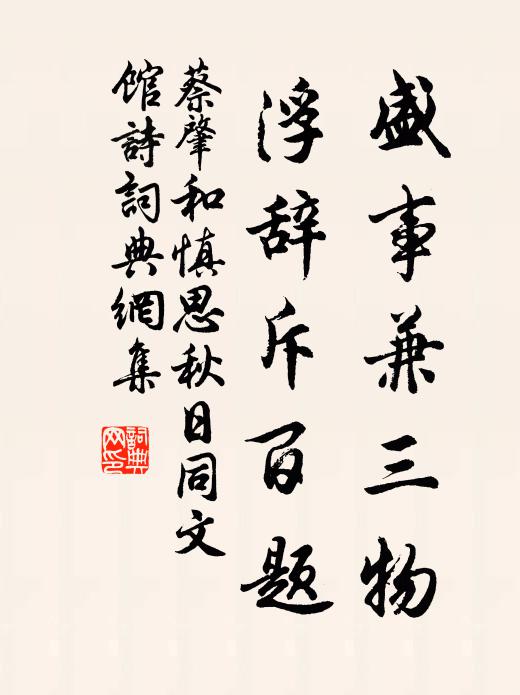 盛事兼三物
浮辞斥百题
蔡肇和慎思秋日同文
馆詩詞典網集
詞典网印